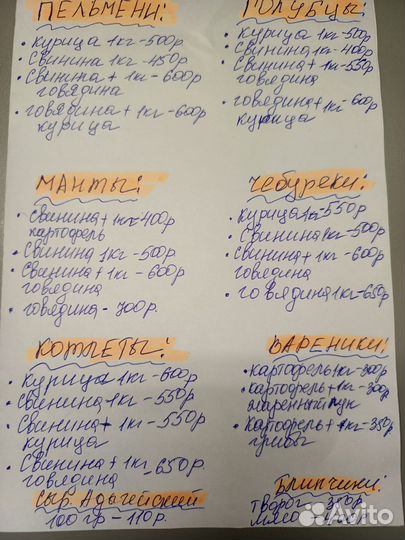 ПЕЛЬМЕНИ:
• курица 1кг-500р
• Свинина 1кг-450р
• Свинина + 1кг-600р
говядина
• говядина + 1кг-600р
курица
ГОЛУБЦЫ:
• Курица 1кг-500
• Свинина 1кг-400р
• Свинина + 1кг-550р
говядина
• говядина + 1кг-600р
курица
МАНТЫ:
• Свинина + 1кг-400р
картофель
• Свинина 1кг-500р.
• Свинина + 1кг-600р
говядина
• говядина - 700р.
ЧЕБУРЕКИ:
• Курица 1кг-550р
• Свинина 1кг-500р
• Свинина + 1кг-600р
говедина
• говядина 1кг-650р
КОТЛЕТЫ:
• Курица 1кг-600р
• Свинина 1кг-550р
• Свинина + 1кг-550р
курица
• Свинина + 1кг
говядина -650р.
СЫР. Адыгейский
100гр-110р.
ВАРЕНИКИ:
• картофель 1кг-300р
• картофель + 1кг-300р
жаренный лук
• Картофель + 1кг-350р
грибы
Блинчики:
творог - 350р.
мясо
Avito